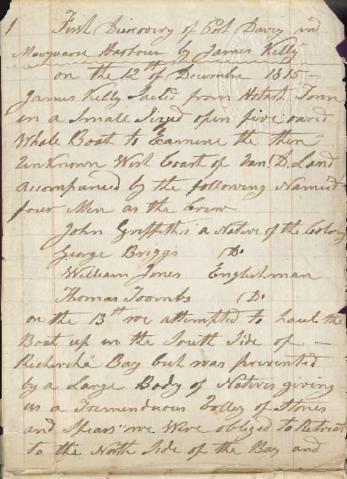 1 First Discovery of Port Davey and
Macquarie Harbour by James Kelly
on the 12th of December 1815 –
James Kelly Sailed from Hobart Town
in a Small Sized open five oared
Whale Boat to Examine the then
Unknown West Coast of Van D. Land
accompanied by the following Named
four Men as the Crew
John Griffiths a Native of the Colony
George Briggs (Do
William Jones Englishman
Thomas Toombs (Do
on the 13th we attempted to haul the
Boat up on the South Side of –
Recherché Bay but was prevented
by a Large Body of Natives giving
us a Tremenduous Volley of Stones
and Spears we Were obliged to Retreat
to the North Side of the Bay and